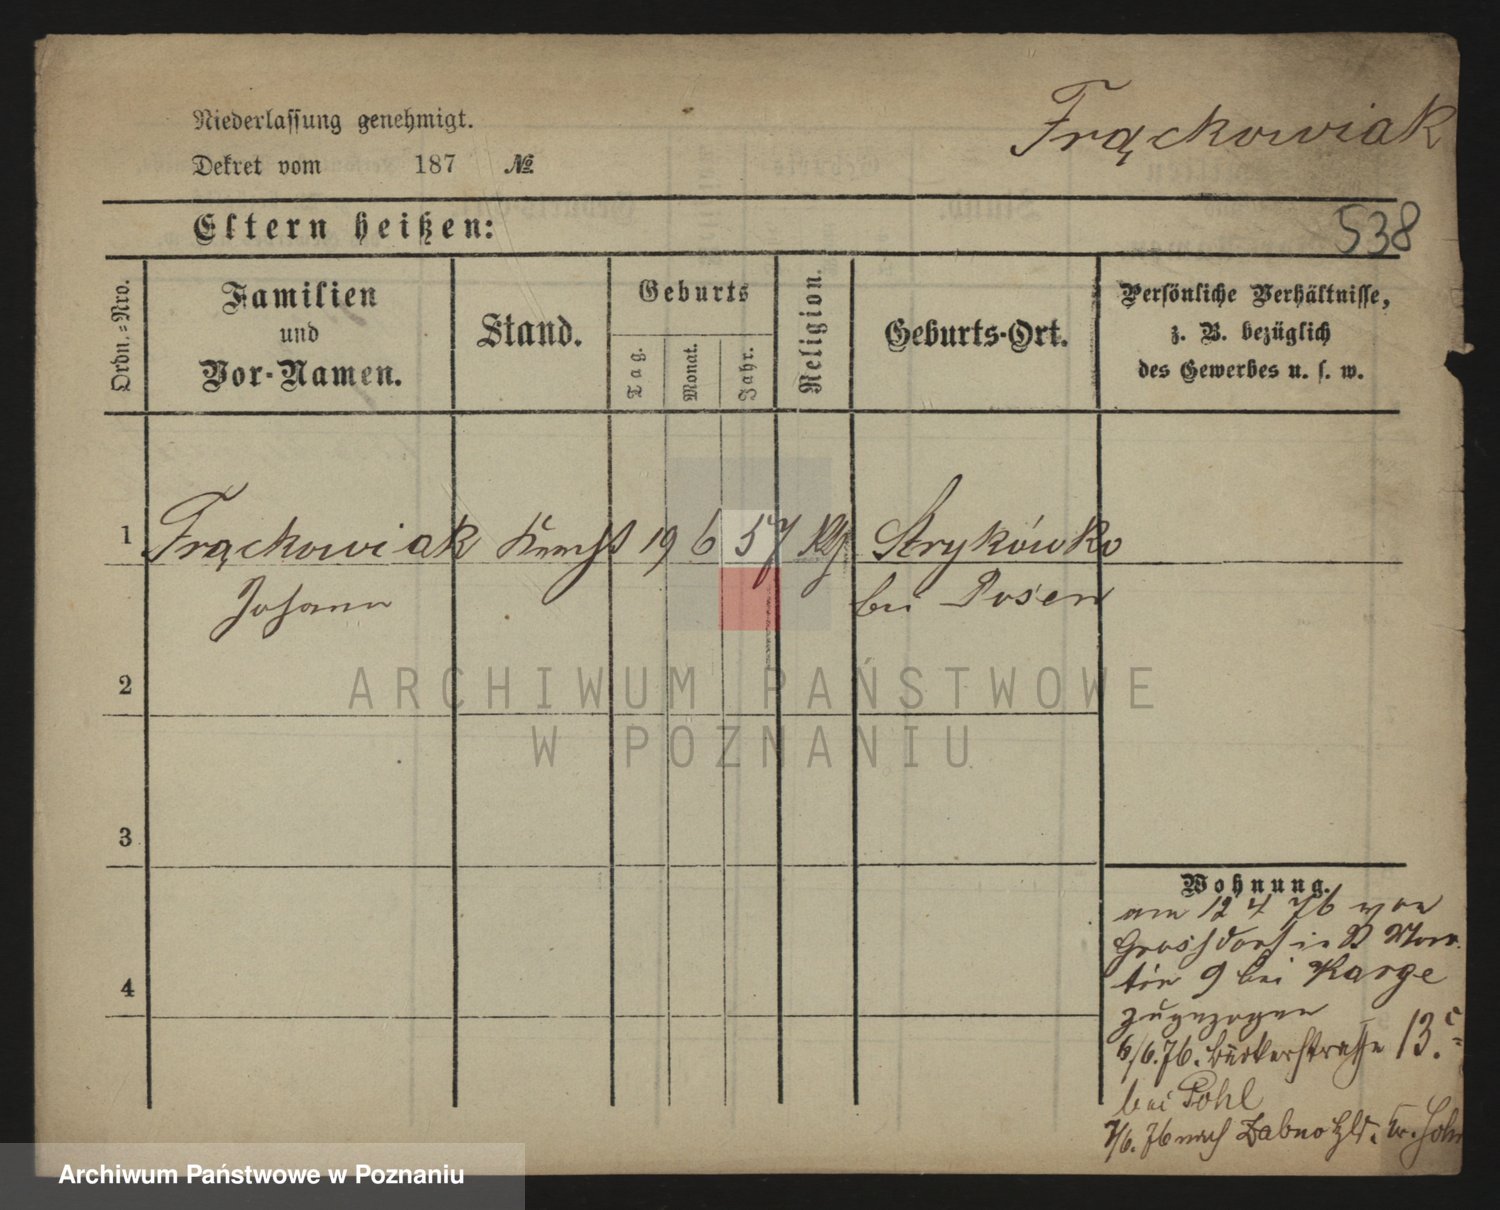 Frąckowiak
Niederlassung genehmigt.
Dekret vom 187 №
Eltern heißen:
538
Ordn.-Nro.
Familien
und
Vor-Namen.
Stand.
Geburts
Tag.
Monat.
Jahr.
Religion.
Geburts-Ort.
Persönliche Verhältnisse,
z. B. bezüglich
des Gewerbes u. s. w.
1 Frąckowiak Knecht 19 6 57 Kth Strykówko
Johann bei Posen
2
3
4
ARCHIWUM PAŃSTWOWE
W POZNANIU
Wohnung.
am 12 4 76 von
Grossdorf in Mar
tin 9 bei Karge
zugezogen
6/6.76. Bäckerstrasse 13.c
bei Pohl
7/6.76 nach Zabno
Archiwum Państwowe w Poznaniu